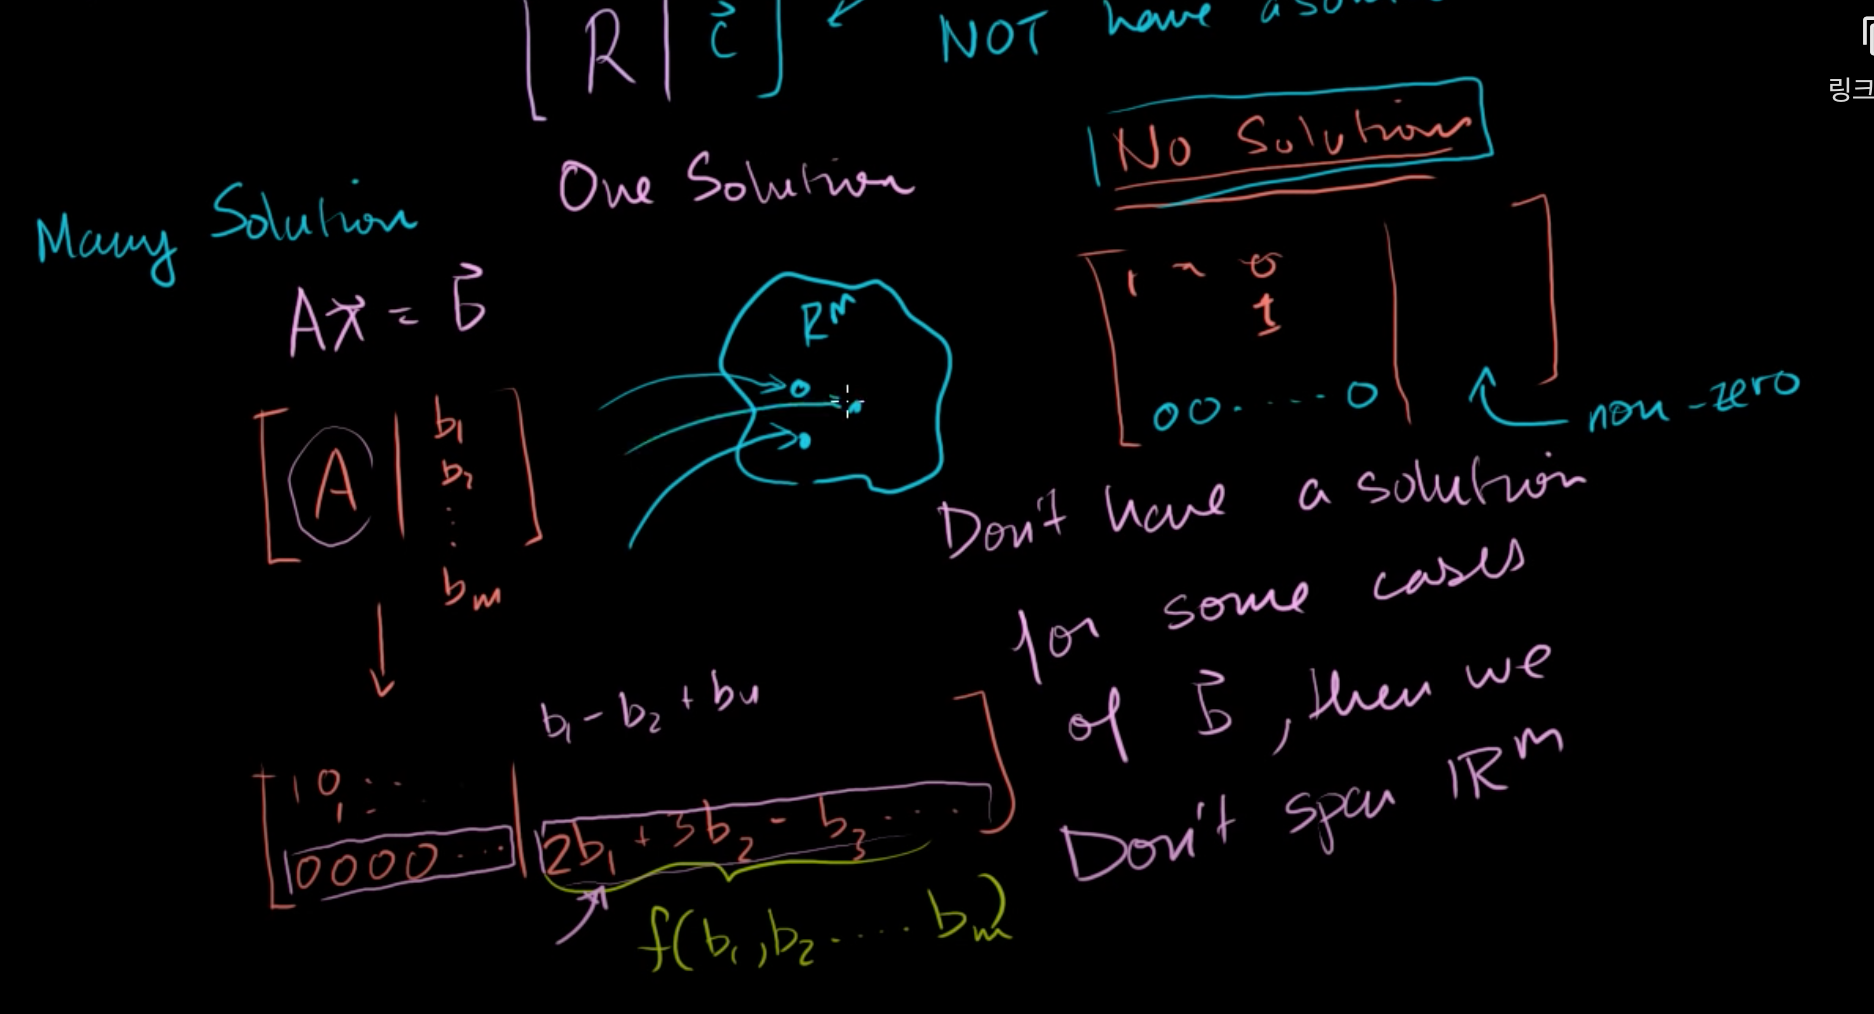 [ R | c⃗ ] NOT have a
링크
No Solution
One Solution
Many Solution
Ax⃗ = b⃗
Rᵐ
1 ~ 0
1
00.....0
non-zero
[ A | b₁
b₂
⋮
bₘ ]
Don't have a solution
for some cases
of b⃗, then we
Don't span ℝᵐ
b₁ - b₂ + b₄
1 0 . . .
1 . .
0000... | 2b₁ + 3b₂ - b₃....
f(b₁, b₂ ..... bₘ)